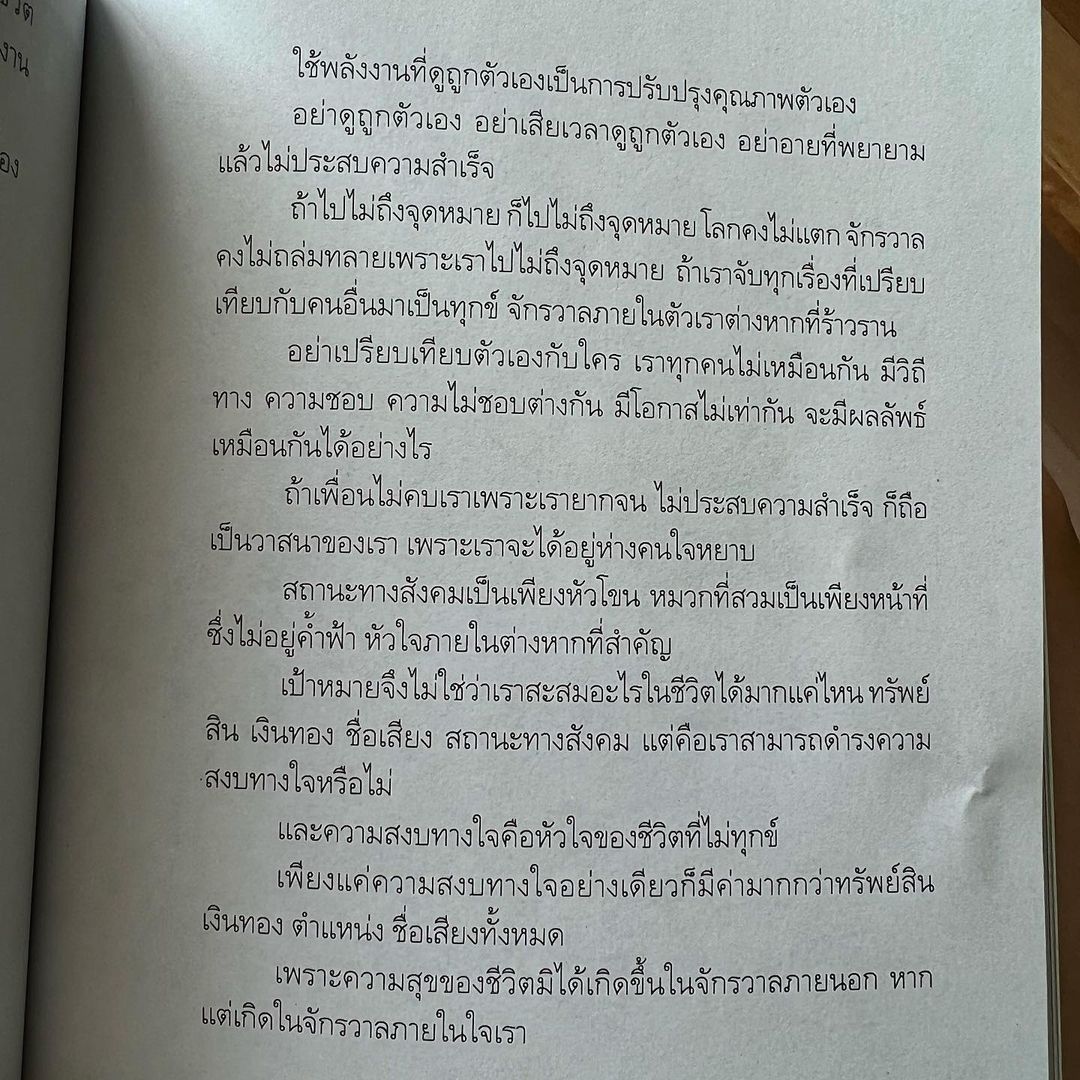 ชีวิต
งาน
อง
ใช้พลังงานที่ดูถูกตัวเองเป็นการปรับปรุงคุณภาพตัวเอง
อย่าดูถูกตัวเอง อย่าเสียเวลาดูถูกตัวเอง อย่าอายที่พยายาม
แล้วไม่ประสบความสำเร็จ
ถ้าไปไม่ถึงจุดหมาย ก็ไปไม่ถึงจุดหมาย โลกคงไม่แตก จักรวาล
คงไม่ถล่มทลายเพราะเราไปไม่ถึงจุดหมาย ถ้าเราจับทุกเรื่องที่เปรียบ
เทียบกับคนอื่นมาเป็นทุกข์ จักรวาลภายในตัวเราต่างหากที่ร้าวราน
อย่าเปรียบเทียบตัวเองกับใคร เราทุกคนไม่เหมือนกัน มีวิถี
ทาง ความชอบ ความไม่ชอบต่างกัน มีโอกาสไม่เท่ากัน จะมีผลลัพธ์
เหมือนกันได้อย่างไร
ถ้าเพื่อนไม่คบเราเพราะเรายากจน ไม่ประสบความสำเร็จ ก็ถือ
เป็นวาสนาของเรา เพราะเราจะได้อยู่ห่างคนใจหยาบ
สถานะทางสังคมเป็นเพียงหัวโขน หมวกที่สวมเป็นเพียงหน้าที่
ซึ่งไม่อยู่ค้ำฟ้า หัวใจภายในต่างหากที่สำคัญ
เป้าหมายจึงไม่ใช่ว่าเราสะสมอะไรในชีวิตได้มากแค่ไหน ทรัพย์
สิน เงินทอง ชื่อเสียง สถานะทางสังคม แต่คือเราสามารถดำรงความ
สงบทางใจหรือไม่
และความสงบทางใจคือหัวใจของชีวิตที่ไม่ทุกข์
เพียงแค่ความสงบทางใจอย่างเดียวก็มีค่ามากกว่าทรัพย์สิน
เงินทอง ตำแหน่ง ชื่อเสียงทั้งหมด
เพราะความสุขของชีวิตมิได้เกิดขึ้นในจักรวาลภายนอก หาก
แต่เกิดในจักรวาลภายในใจเรา